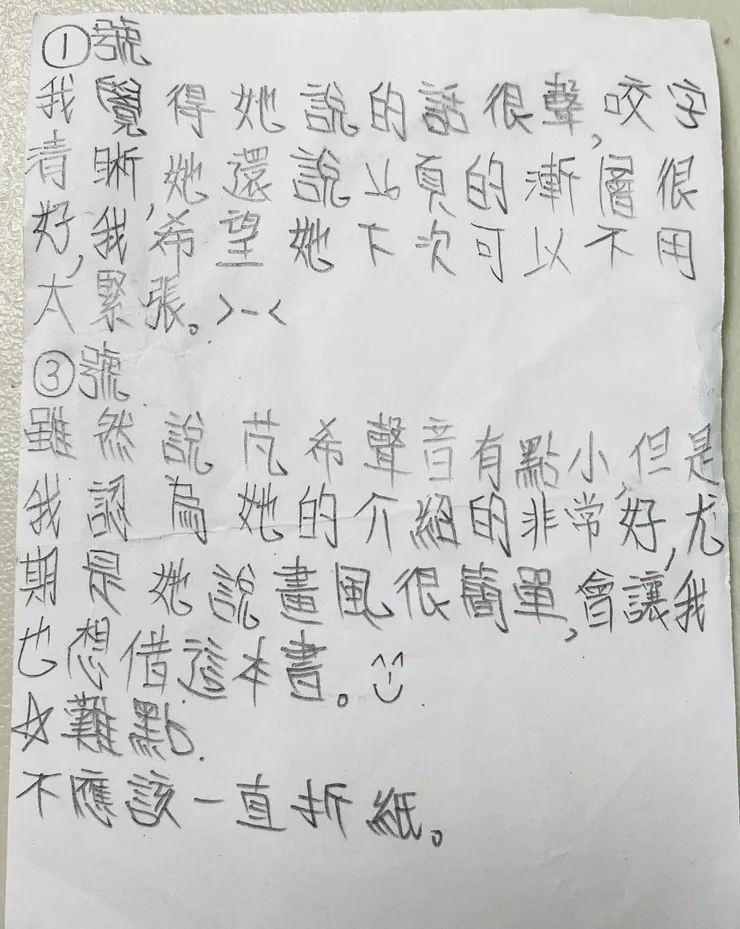 ①號
我覺得她說的話很聲,咬字
清晰,她還說山頁的漸層很
好,我希望她下次可以不用
太緊張。>-<
③號
雖然說芃希聲音有點小,但是
我認為她的介紹的非常好,尤
期是她說畫風很簡單,會讓我
也想借這本書。
☆難點.
不應該一直折紙。